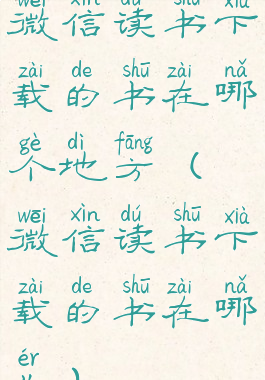 wēi xìn dú shū xià
微信读书下
zài de shū zài nǎ
载的书在哪
gè dì fāng
个地方（
wēi xìn dú shū xià
微信读书下
zài de shū zài nǎ
载的书在哪
ér